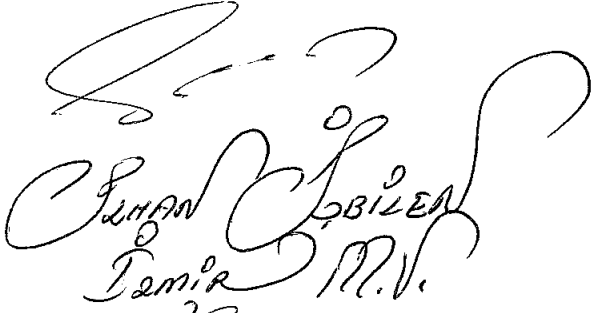 İLHAN İŞBİLEN
İzmir M.V.